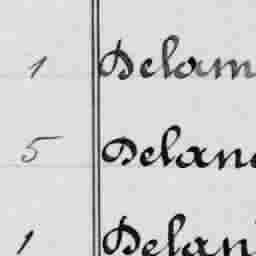 1 Delam
5 Delan
1 Delan